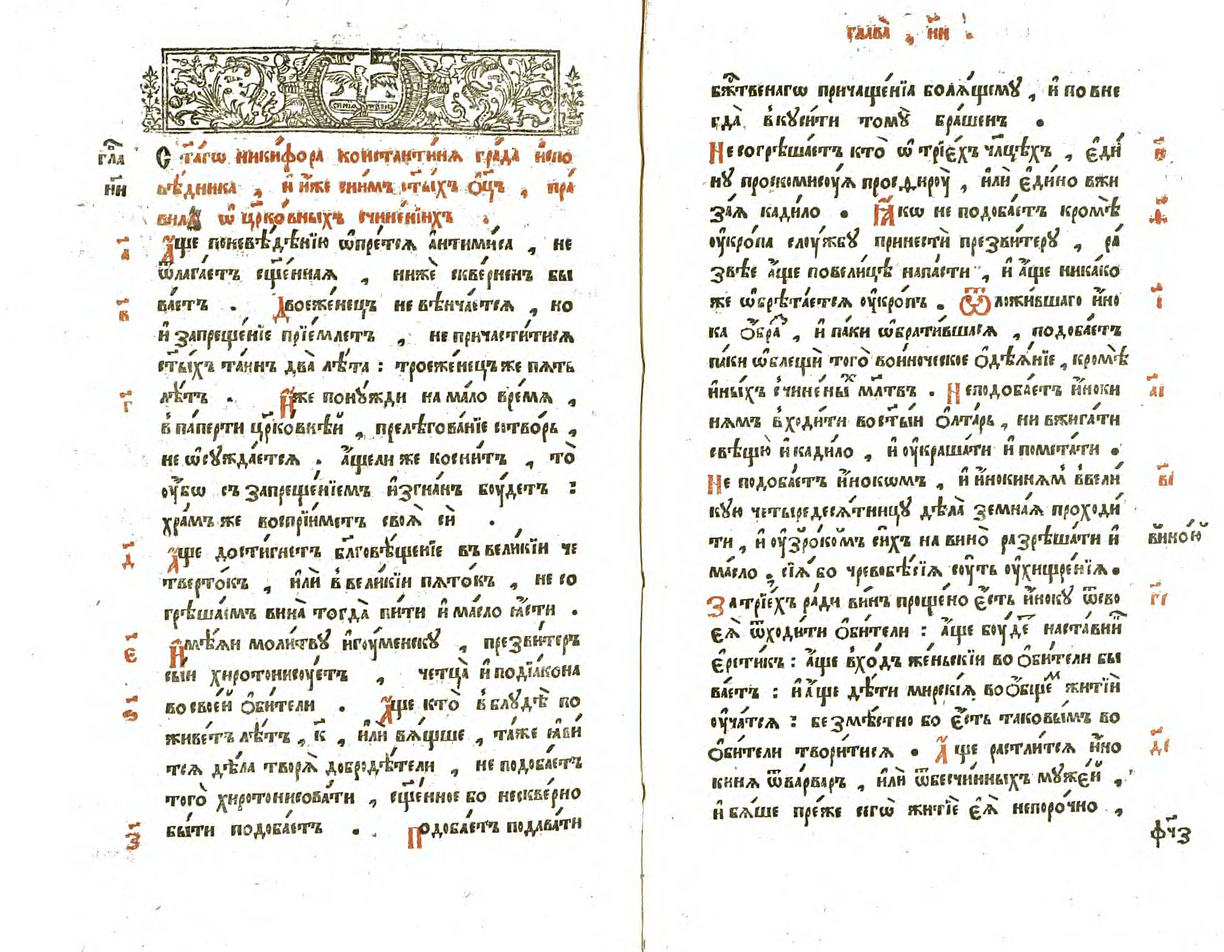 гла҃
н҃и
С та́гѡ никифора константина гра́да испо
вѣ́дника , и и҆́же сни́мъ ст҃ы́хъ ѻ҆ц҃ъ , пра
вила ѡ҆ цр҃ко́вныхъ счине́нїихъ
а҃
А҆́ще поневѣ́дѣнїю ѡ҆пре́тсѧ а҆нтими́са , не
ѿлага́етъ сщ҃е́ннаѧ , нижѐ скве́рненъ бы
ва́етъ . Двоеже́нецъ не вѣнча́етсѧ , но
в҃
и҆ запреще́нїе прїе́млетъ , не причасти́тисѧ
ст҃ы́хъ та́инъ два̀ лѣ́та : троеже́нецъ же пѧ́ть
лѣ́тъ . И҆́же пону́жди на ма́ло вре́мѧ ,
г҃
в па́перти цр҃ко́внѣй , прелѣгова́нїе сотво́рь ,
не ѡ҆сужда́етсѧ . а҆́щели же косни́тъ , то̀
оу҆́бѡ съ запреще́нїемъ и҆згна́нъ боу́детъ :
хра́мъ же воспрїи́метъ своѧ̀ си̏ .
д҃
А҆́ще дости́гнетъ бл҃гов́ѣщенїе въ вели́кїи че
тверто́къ , и҆лѝ в вели́кїи пѧто́къ , не со
грѣша́емъ вина̀ тогда̀ пи́ти и҆ ма́сло ꙗ҆́сти .
е҃
И҆мѣ́ѧи моли́тву и҆гоу́менску , презви́теръ
сыи хиротонисоу́етъ , четца̀ и҆ подїа́кона
во свое́й ѻ҆би́тели . А҆́ще кто̀ в блу́дѣ по
ѕ҃
живе́тъ лѣ́тъ , к҃ , и҆лѝ вѧ́щше , та́же ꙗ҆ви
тсѧ дѣ́ла творѧ̀ добродѣ́тели , не подоба́етъ
того̀ хиротонисова́ти , сщ҃е́нное бо нескве́рно
бы́ти подоба́етъ . Подоба́етъ подава́ти
з҃
глава̀ , н҃и .
бжⷭ҇твенагѡ причаще́нїѧ болѧ́щему , и҆ по вне
гда̀ вкуси́ти тому̀ бра́шенъ .
Не согрѣша́етъ кто̀ ѡ҆ трїе́хъ ча́щѣхъ , є҆ди́
и҃
ну проскомисоу́ѧ просфироу̀ , и҆лѝ є҆ди́но вжи
за́ѧ кади́ло . Ꙗ҆́кѡ не подоба́етъ кромѣ̀
ѳ҃
оу҆кро́па слоу́жбу принестѝ презви́теру , ра́
звѣе а҆́ще по вели́цѣ напа́сти , и҆ а҆́ще ника́ко
же ѡ҆брѣта́етсѧ оу҆кро́пъ . Ѿложи́вшаго и҆́но
і҃
ка ѻ҆́браⷥ , и҆ па́ки ѡ҆брати́вшасѧ , подоба́етъ
па́ки ѡ҆блещѝ того̀ во и҆́ноческое ѻ҆дѣѧ́нїе , кромѣ̀
и҆́ныхъ счине́ныⷯ мл҃твъ . Неподоба́етъ и҆́ноки
а҃і
нѧмъ входи́ти во ст҃ы́и ѻ҆лта́рь , ни вжига́ти
свѣщю̀ и҆ кади́ло , и҆ оу҆краша́ти и҆ помета́ти .
Не подоба́етъ и҆́нокѡмъ , и҆ и҆́нокинѧм в вели́
в҃і
кую четыредесѧ́тницу дѣ́ла зе́мнаѧ проходи́
ти , и҆ оу҆зро́комъ си́хъ на вино̀ разрѣша́ти и҆
виноⷨю
ма́сло , сїѧ́ бо чревобѣ́сїѧ соу́ть оу҆хищре́нїѧ .
За трїе́хъ ра́ди ви́нъ проще́но є҆́сть и҆́ноку ѿ сво
г҃і
еѧ̀ ѿходи́ти ѻ҆би́тели : а҆́ще боу́деⷮ наста́вниⷦ
є҆рети́къ : а҆́ще вхо́дъ же́ньскїи во ѻ҆би́тели бы
ва́етъ : и҆ а҆́ще дѣ́ти мирскі́ѧ во ѻ҆́бщеⷨ житїѝ
оу҆ча́тсѧ : безмѣ́стно бо є҆́сть таковы́мъ во
ѻ҆би́тели твори́тисѧ . А҆́ще растли́тсѧ и҆́но
д҃і
кинѧ ѿ ва́рваръ , и҆лѝ ѿ бесчи́нныхъ муже́й ,
и҆ бѧ́ше пре́же сегѡ̀ житїѐ є҆ѧ̀ непоро́чно ,
фч҃з